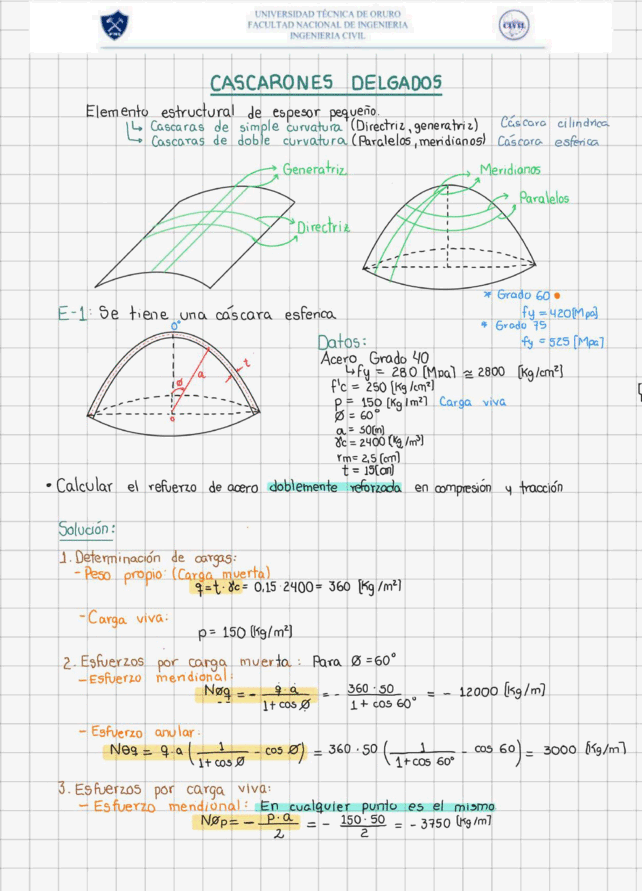 UNIVERSIDAD TÉCNICA DE ORURO
FACULTAD NACIONAL DE INGENIERIA
INGENIERIA CIVIL
CIVIL
CASCARONES DELGADOS
Elemento estructural de espesor pequeño.
↳ Cascaras de simple curvatura (Directriz, generatriz) Cáscara cilíndrica
↳ Cascaras de doble curvatura (Paralelos, meridianos) Cáscara esférica
Generatriz
Directriz
Meridianos
Paralelos
* Grado 60
fy = 420 [Mpa]
* Grado 75
fy = 525 [Mpa]
E-1: Se tiene una cáscara esferica
0°
a
t
Ø
o
Datos:
Acero Grado 40
↳ fy = 280 [Mpa] ≅ 2800 [Kg/cm²]
f'c = 250 [Kg/cm²]
p = 150 [Kg/m²] Carga viva
Ø = 60°
a = 50[m]
γc = 2400 [Kg/m³]
rm = 2,5 [cm]
t = 15[cm]
• Calcular el refuerzo de acero doblemente reforzada en compresión y tracción
Solución:
1. Determinación de cargas:
- Peso propio: (Carga muerta)
q = t · γc = 0,15 · 2400 = 360 [Kg/m²]
- Carga viva:
p = 150 [Kg/m²]
2. Esfuerzos por carga muerta: Para Ø = 60°
- Esfuerzo meridional:
NØq = - q · a / 1 + cos Ø = - 360 · 50 / 1 + cos 60° = - 12000 [Kg/m]
- Esfuerzo anular:
Nθq = q · a ( 1 / 1 + cos Ø - cos Ø ) = 360 · 50 ( 1 / 1 + cos 60° - cos 60 ) = 3000 [Kg/m]
3. Esfuerzos por carga viva:
- Esfuerzo meridional: En cualquier punto es el mismo
NØp = - p · a / 2 = - 150 · 50 / 2 = - 3750 [Kg/m]